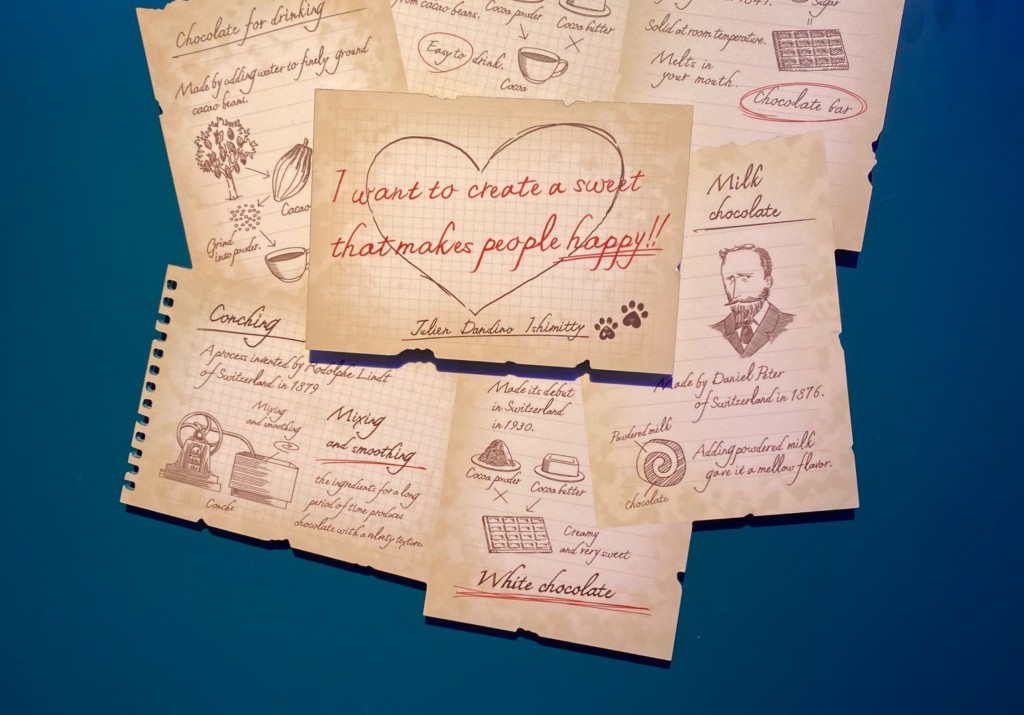 Chocolate for drinking
Made by adding water to finely ground
cacao beans.
Cacao
Grind
into powder.
from cacao beans.
Cocoa powder
Cocoa butter
Easy to drink.
Cocoa
Sugar
Solid at room temperature.
Melts in
your mouth.
Chocolate bar
I want to create a sweet
that makes people happy!!
Julien Dandino Ishimitty
Milk
chocolate
Made by Daniel Peter
of Switzerland in 1876.
Powdered milk
chocolate
Adding powdered milk
gave it a mellow flavor.
Conching
A process invented by Rodolphe Lindt
of Switzerland in 1879
Mixing
and smoothing
Conche
Mixing
and smoothing
the ingredients for a long
period of time produces
chocolate with a velvety texture.
Made its debut
in Switzerland
in 1930.
Cocoa powder
Cocoa butter
Creamy
and very sweet
White chocolate